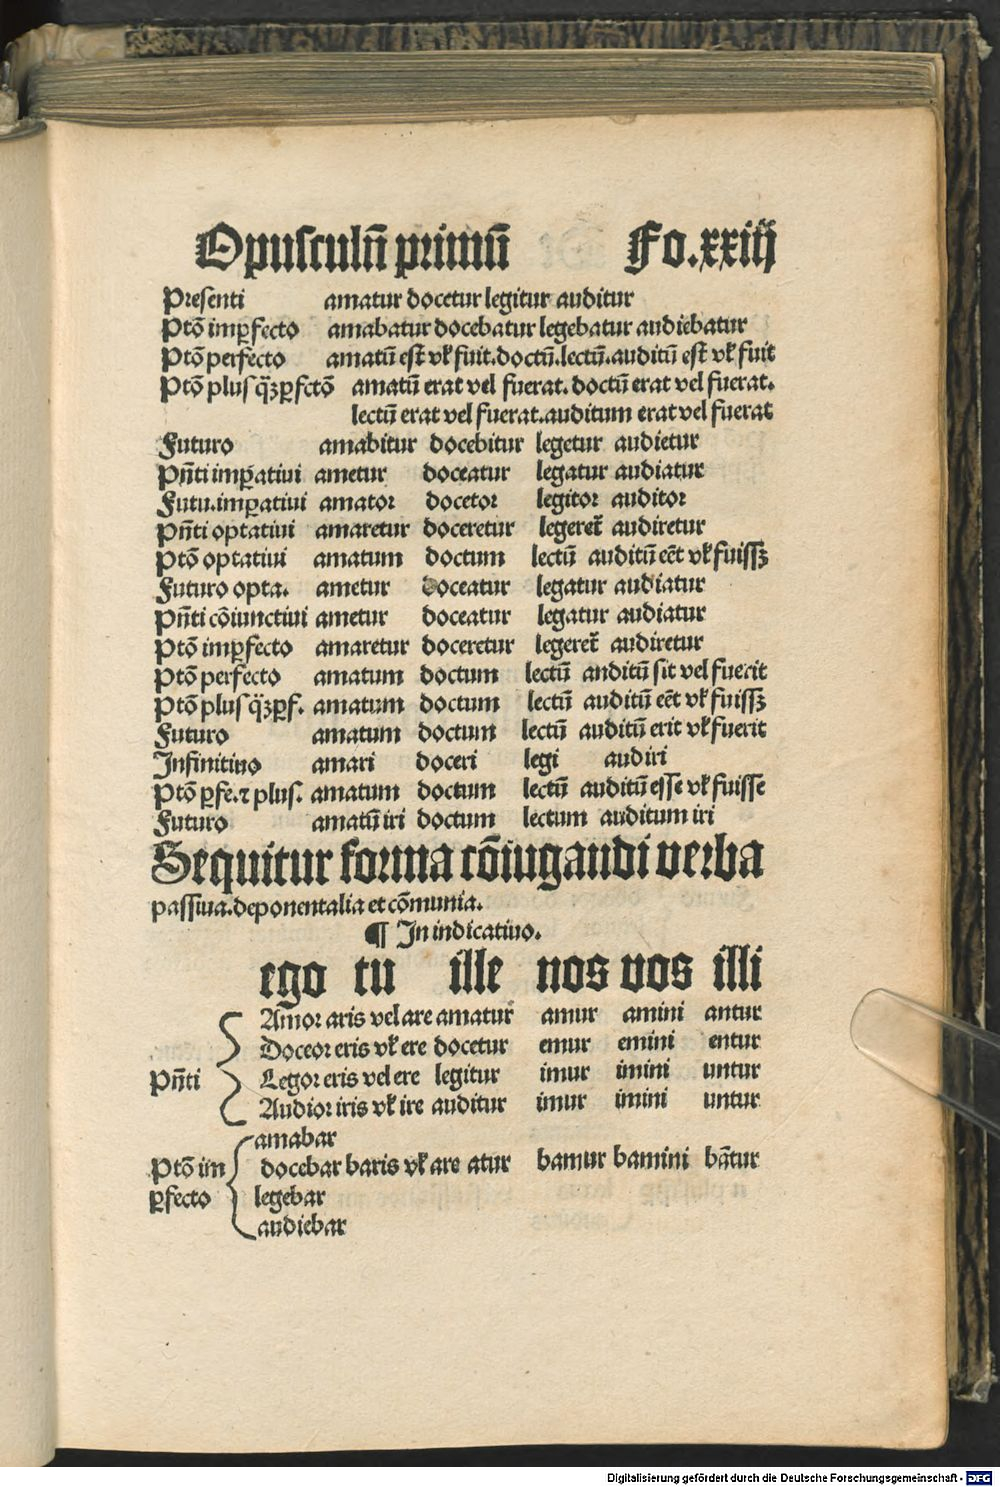 Opusculū primū Fo.xxiiij
Presenti amatur docetur legitur auditur
Ptō imꝑfecto amabatur docebatur legebatur audiebatur
Ptō perfecto amatū est vꝉ fuit.doctū.lectū.auditū est vꝉ fuit
Ptō plus q̄ꝫꝑfctō amatū erat vel fuerat.doctū erat vel fuerat.
lectū erat vel fuerat.auditum erat vel fuerat
Futuro amabitur docebitur legetur audietur
Pn̄ti imꝑatiui ametur doceatur legatur audiatur
Futu.imꝑatiui amator docetor legitor auditor
Pn̄ti optatiui amaretur doceretur legeret̄ audiretur
Ptō optatiui amatum doctum lectū auditū eēt vꝉ fuissꝫ
Futuro opta. ametur doceatur legatur audiatur
Pn̄ti cōiunctiui ametur doceatur legatur audiatur
Ptō imꝑfecto amaretur doceretur legeret̄ audiretur
Ptō perfecto amatum doctum lectū anditū sit vel fuerit
Ptō plus q̄ꝫꝑf. amatum doctum lectū auditū eēt vꝉ fuissꝫ
Futuro amatum doctum lectū auditū erit vꝉ fuerit
Infinitiuo amari doceri legi audiri
Ptō ꝑfe.⁊ plus. amatum doctum lectū auditū esse vꝉ fuisse
Futuro amatū iri doctum lectum auditum iri
Sequitur forma cōiugandi verba
passiua.deponentalia et cōmunia.
¶ In indicatiuo.
ego tu ille nos vos illi
Amor aris vel are amatur amur amini antur
Doceor eris vꝉ ere docetur emur emini entur
Pn̄ti Legor eris vel ere legitur imur imini untur
Audior iris vꝉ ire auditur imur imini untur
amabar
Ptō im docebar baris vꝉ are atur bamur bamini bātur
ꝑfecto legebar
audiebar
Digitalisierung gefördert durch die Deutsche Forschungsgemeinschaft - DFG